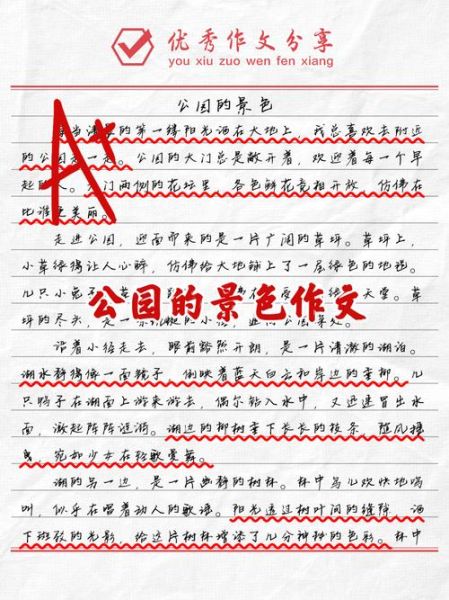 优秀作文分享
you xiu zuo wen fen xiang
公园的景色
的第一缕阳光洒在大地上，我总喜欢去附近
的公园走一走。公园的大门总是敞开着，欢迎着每一个早
起的人。大门两侧的花坛里，各色鲜花竞相开放，仿佛在
比谁更美丽。
走进公园，迎面而来的是一片广阔的草坪。草坪上，
小草绿得让人心醉，仿佛给大地铺上了一层绿色的地毯。
几只小兔子
公园的景色作文
天堂。草
坪的尽头，是一条
沿着小径走去，眼前豁然开朗，是一片清澈的湖泊。
湖水静得像一面镜子，倒映着蓝天白云和岸边的垂柳。几
只鸭子在湖面上游来游去，偶尔钻入水中，又迅速冒出水
面，激起阵阵涟漪。湖边的柳树垂下长长的枝条，随风摇
曳，宛如少女在轻歌曼舞。
湖的另一边，是一片幽静的树林。林中鸟儿欢快地鸣
叫，似乎在唱着动人的歌谣。阳光透过树叶间的缝隙，洒
下斑驳的光影，给这片树林增添了几分神秘的色彩。林中
A+